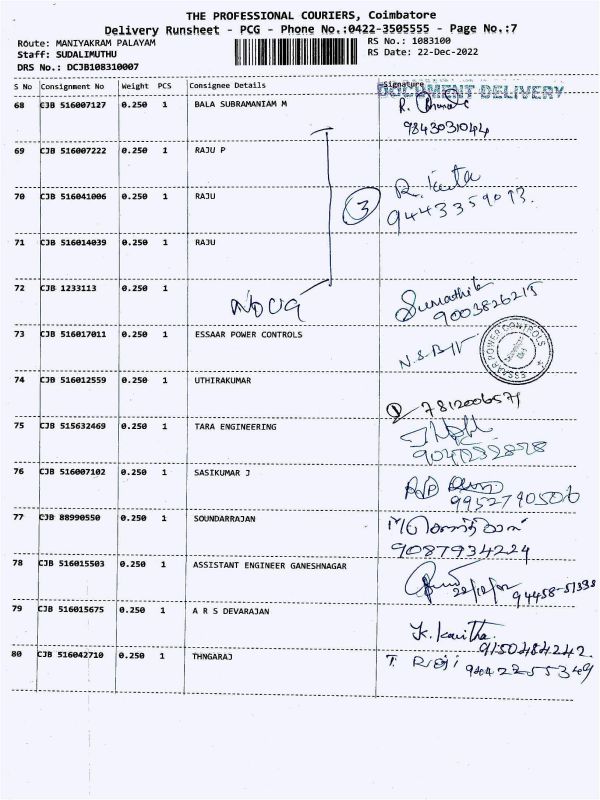 THE PROFESSIONAL COURIERS, Coimbatore
Delivery Runsheet - PCG - Phone No.:0422-3505555 - Page No.:7
Route: MANIYAKRAM PALAYAM RS No.: 1083100
Staff: SUDALIMUTHU RS Date: 22-Dec-2022
DRS No.: DCJB108310007
S No Consignment No Weight PCS Consignee Details Signature
DOCUMENT DELIVERY
68 CJB 516007127 0.250 1 BALA SUBRAMANIAM M
9843031044
69 CJB 516007222 0.250 1 RAJU P
70 CJB 516041006 0.250 1 RAJU
3
9443359073.
71 CJB 516014039 0.250 1 RAJU
72 CJB 1233113 0.250 1
Sumathi
9003826215
73 CJB 517017011 0.250 1 ESSAAR POWER CONTROLS
ESSAAR POWER CONTROLS
74 CJB 516012559 0.250 1 UTHIRAKUMAR
7812006571
75 CJB 515632469 0.250 1 TARA ENGINEERING
76 CJB 516007102 0.250 1 SASIKUMAR J
9952740506
77 CJB 88990550 0.250 1 SOUNDARRAJAN
9087934224
78 CJB 516015503 0.250 1 ASSISTANT ENGINEER GANESHNAGAR
79 CJB 516015675 0.250 1 A R S DEVARAJAN
K. Kavitha
9150484242.
80 CJB 516042710 0.250 1 THNGARAJ